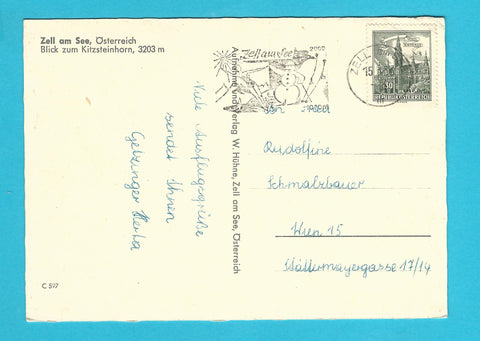 Zell am See, Österreich
Blick zum Kitzsteinhorn, 3203 m
Viele Ausflugsgrüße
sendet Ihnen
Getzinger Herta
Aufnahme und Verlag W. Höhne, Zell am See, Österreich
Zell am See
2000
ZELL
15
REPUBLIK ÖSTERREICH
Rudolfine
Schmalzbauer
Wien 15
Stättermayergasse 17/14
C 597